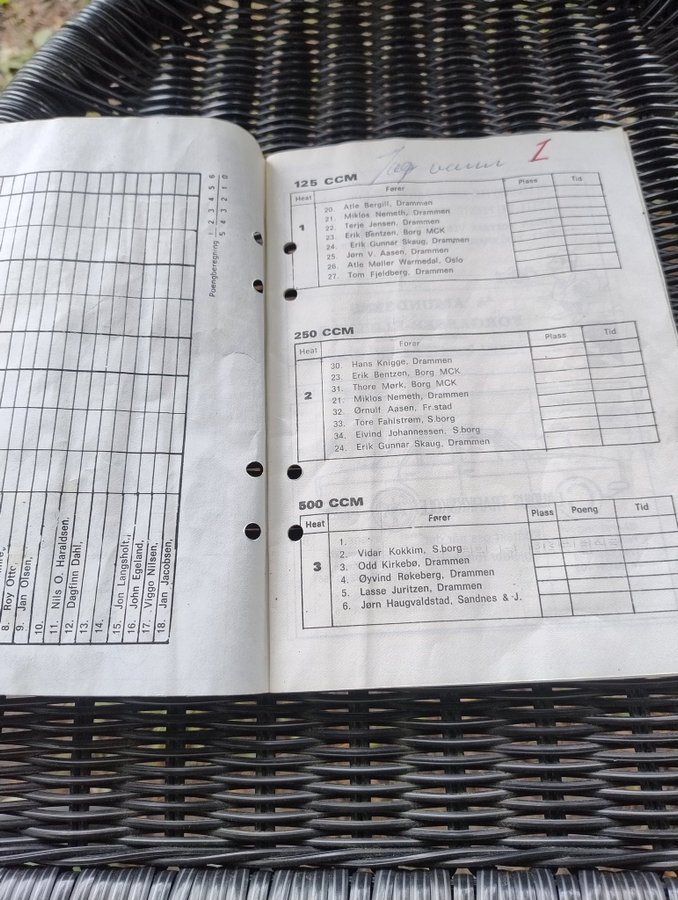 8. Roy Otto,
9. Jan Olsen,
10.
11. Nils O. Haraldsen.
12. Dagfinn Dahl,
13.
14.
15. Jon Langsholt,
16. John Egeland,
17. Viggo Nilsen,
18. Jan Jacobsen,
Poengberegning 1 2 3 4 5 6
5 4 3 2 1 0
Jag vann 1
125 CCM
Heat Fører Plass Tid
1
20. Atle Bergill, Drammen
21. Miklos Nemeth, Drammen
22. Terje Jensen, Drammen
23. Erik Bentzen, Borg MCK
24. Erik Gunnar Skaug, Drammen
25. Jørn V. Aasen, Drammen
26. Atle Møller Warmedal, Oslo
27. Tom Fjeldberg, Drammen
250 CCM
Heat Fører Plass Tid
2
30. Hans Knigge, Drammen
23. Erik Bentzen, Borg MCK
31. Thore Mørk, Borg MCK
21. Miklos Nemeth, Drammen
32. Ørnulf Aasen, Fr.stad
33. Tore Fahlstrøm, S.borg
34. Eivind Johannessen, S.borg
24. Erik Gunnar Skaug, Drammen
500 CCM
Heat Fører Plass Poeng Tid
3
1.
2. Vidar Kokkim, S.borg
3. Odd Kirkebø, Drammen
4. Øyvind Røkeberg, Drammen
5. Lasse Juritzen, Drammen
6. Jørn Haugvaldstad, Sandnes & J.